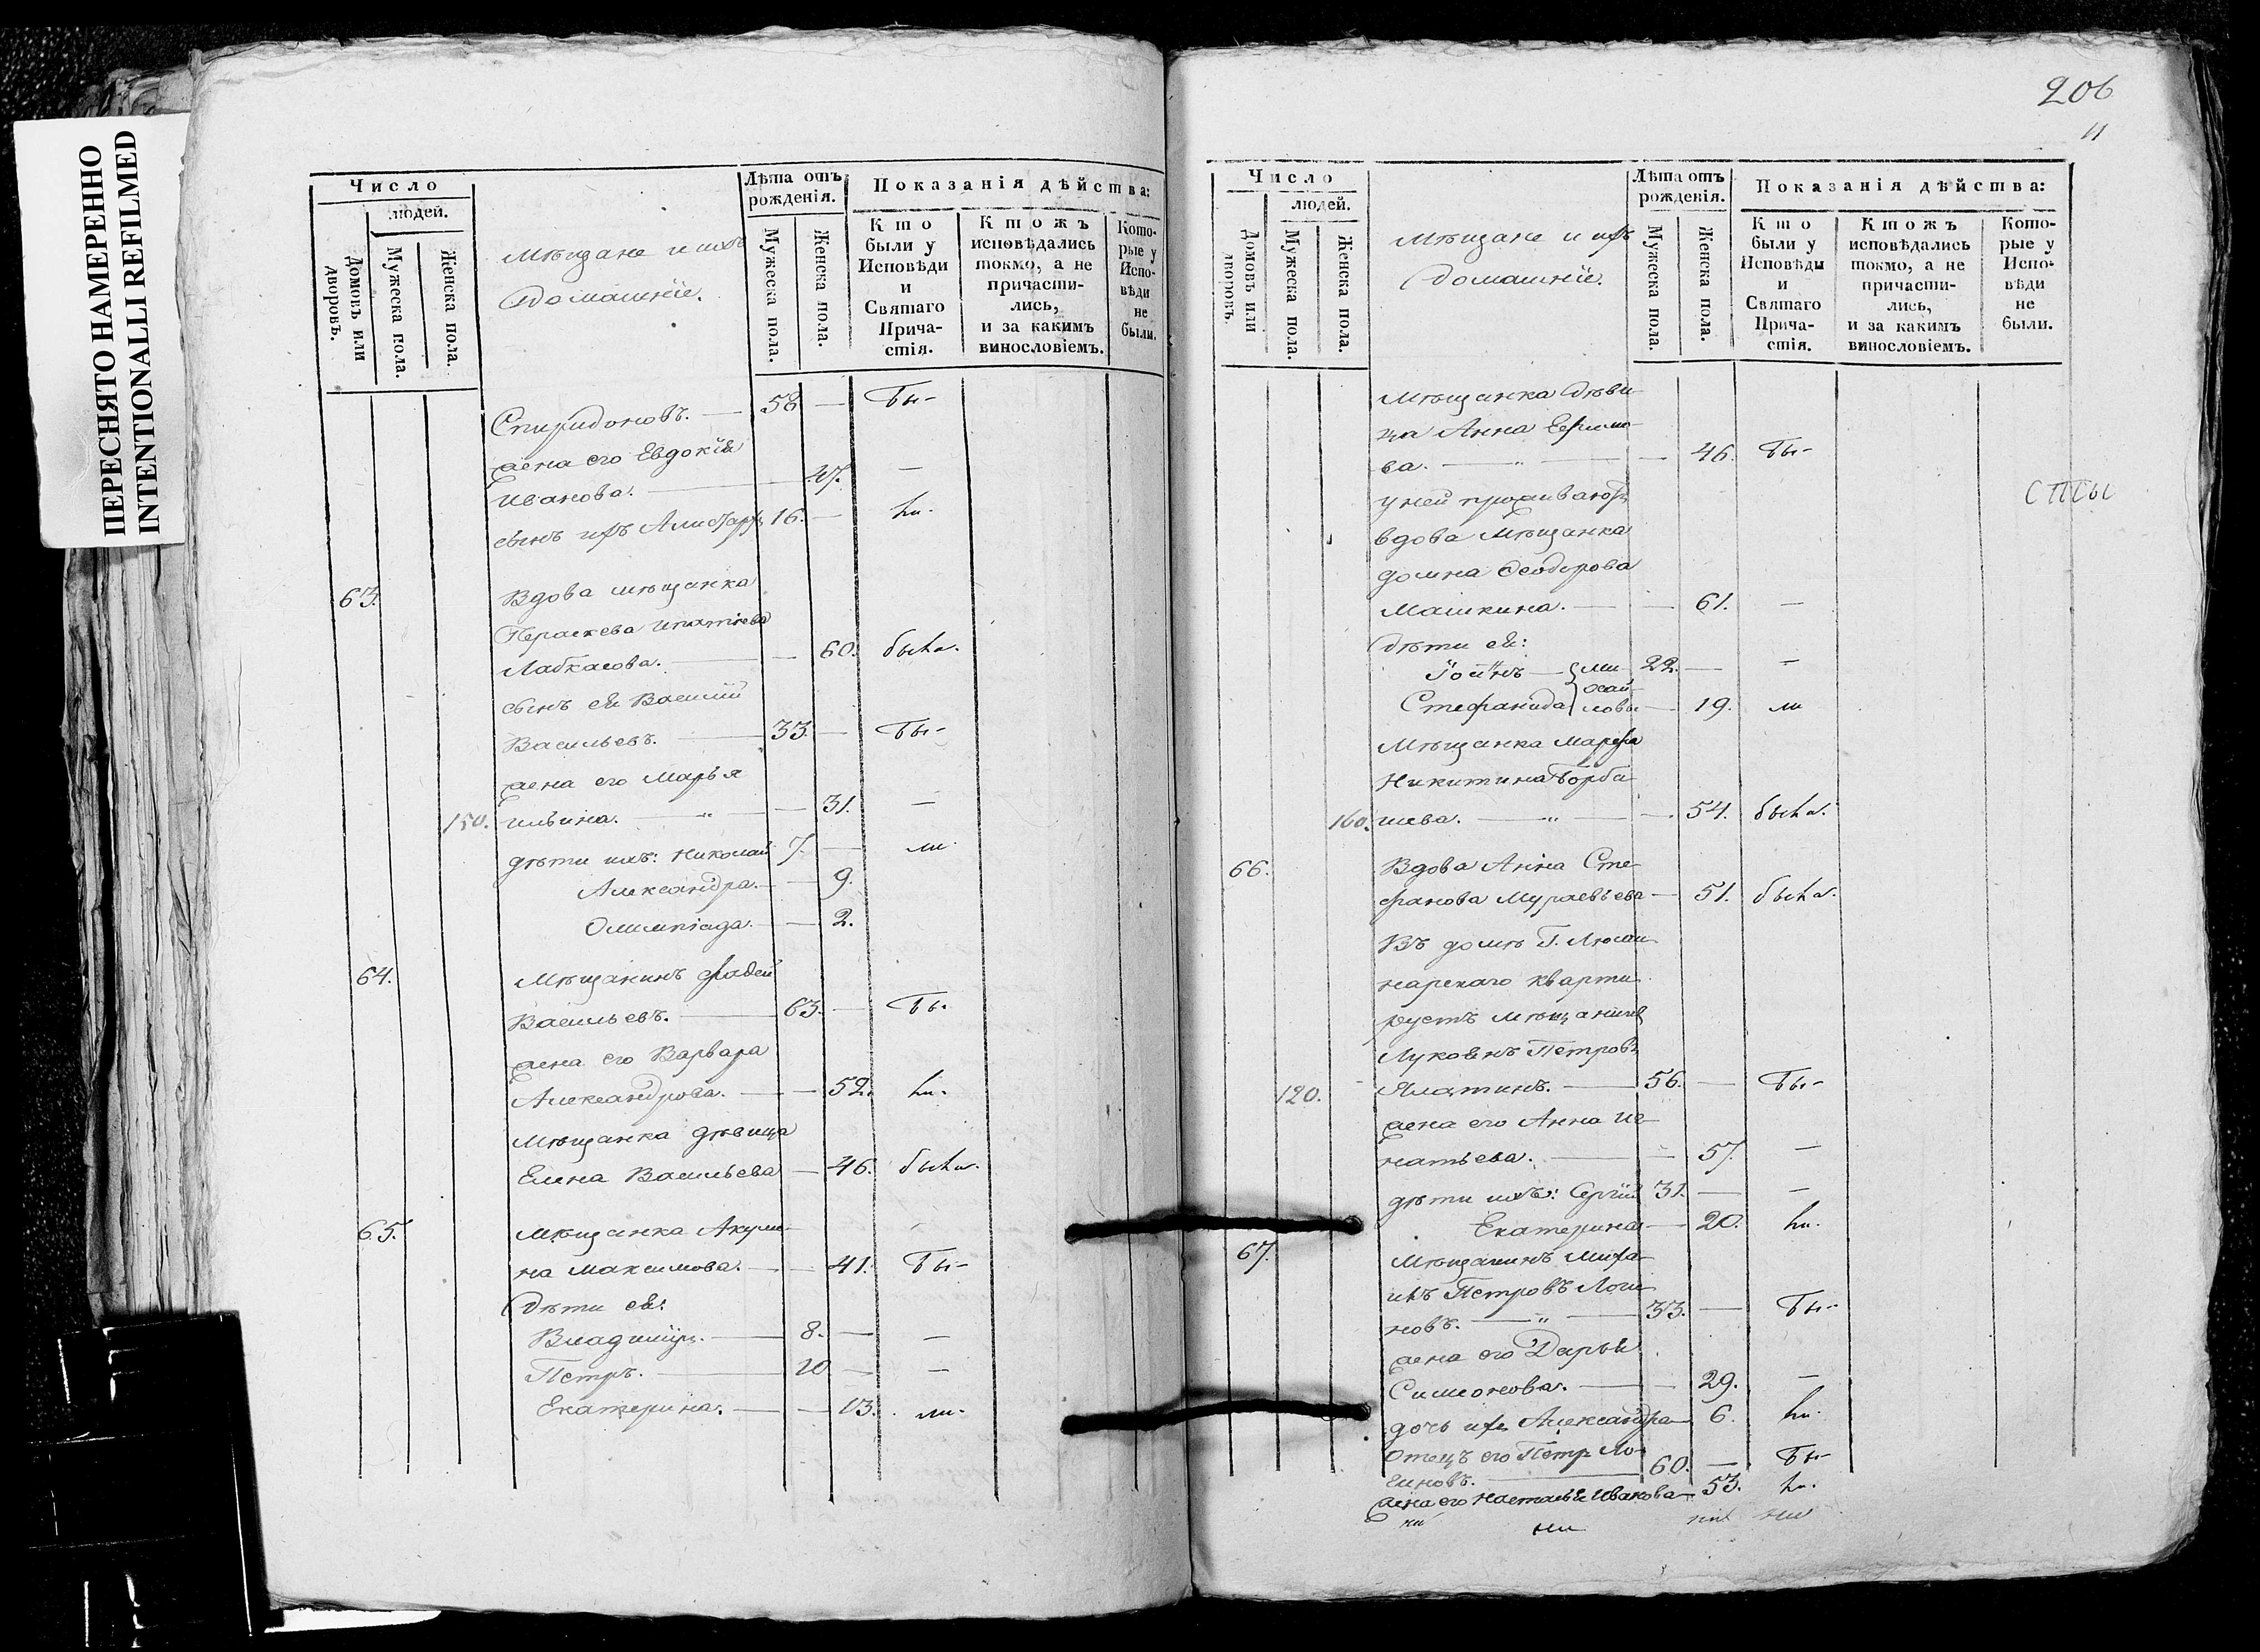 ПЕРЕСНЯТО НАМЕРЕННО
INTENTIONALLI REFILMED
Число
людей.
Домовъ или дворовъ.
Мужеска пола.
Женска пола.
Мѣщане и ихъ
домашніе.
Лѣта отъ рожденія.
Мужеска пола.
Женска пола.
Показанія дѣйства:
Кто были у Исповѣди и Святаго Прича-стія.
Ктожъ исповѣдались токмо, а не причасти-лись, и за какимъ винословіемъ.
Кото-рые у Испо-вѣди не были.
Спиридоновъ. — 58 — Бы-
жена его Евдокія
Иванова. — 47. —
сынъ ихъ 16. — ли.
63. Вдова мѣщанка
Параскева Ипатіева
— 60. была.
сынъ ея Василій
Васильевъ. — 33. — Бы-
жена его Марья
150. Ильина. — „ — 31. —
дѣти ихъ: Николай 7. — ли.
Александра. — 9.
Олимпіада. — 2.
64. Мѣщанинъ Фадей
Васильевъ. — 63. — Бы-
жена его Варвара
Александрова. — 52. ли.
Мѣщанка дѣвица
Елена Васильева — 46. была.
65. Мѣщанка Акули-
на Максимова. — 41. Бы-
Дѣти ея:
Владиміръ. — 8. — —
Петръ. — 10 — —
Екатерина. — 13. ли.
206
11
Число
людей.
Домовъ или дворовъ.
Мужеска пола.
Женска пола.
Мѣщане и ихъ
домашніе.
Лѣта отъ рожденія.
Мужеска пола.
Женска пола.
Показанія дѣйства:
Кто были у Исповѣди и Святаго Прича-стія.
Ктожъ исповѣдались токмо, а не причасти-лись, и за какимъ винословіемъ.
Кото-рые у Испо-вѣди не были.
Мѣщанка дѣви-
ца Анна Ефимо-
ва. — „ — — 46. Бы-
у ней проживаютъ
вдова Мѣщанка
Домна Ѳеодорова
Машкина. — — 61. —
Дѣти ея:
Іоаннъ — Ми- 22. — —
Стефанида хай-ловы — 19. ли
Мѣщанка Марфа
Никитина Горба-
160. шева. — „ — — 54. была.
66. Вдова Анна Сте-
фанова Муравьева — 51. была.
Въ домѣ Г. Люми-
нарскаго кварти-
руетъ мѣщанинъ
Петровъ
120. — 56. — Бы-
жена его Анна Иг-
натьева. — — 57. —
дѣти ихъ: Сергій 31. — —
Екатерина — 20. ли.
67. Мѣщанинъ Миха-
илъ Петровъ Логи-
новъ. — „ — 33. — Бы-
жена его Дарья
Симеонова. — — 29. —
дочь ихъ Александра — 6. ли.
Отецъ его Петръ Ло-
гиновъ. — 60. — Бы-
жена его Настасья Иванова — 53. ли.